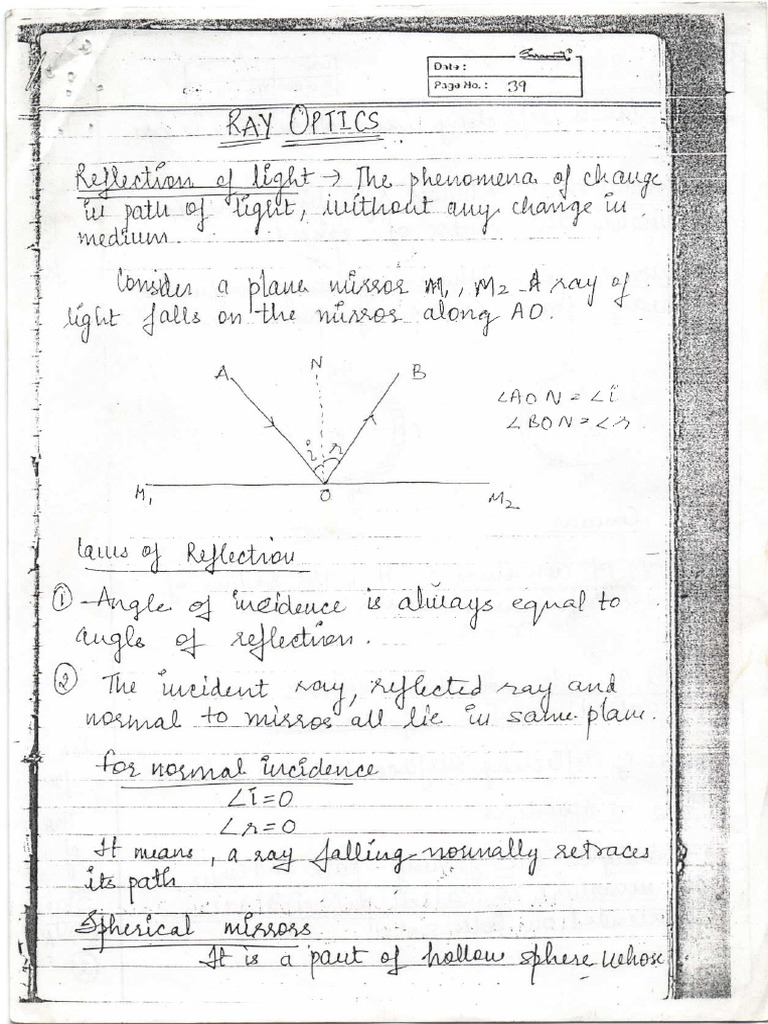 Date :
Page No. : 39
RAY OPTICS
Reflection of light → The phenomena of change
in path of light, without any change in
medium.
Consider a plane mirror M1, M2. A ray of
light falls on the mirror along AO.
A N B
∠AON = ∠i
∠BON = ∠r
i r
M1 O M2
Laws of Reflection
① Angle of incidence is always equal to
angle of reflection.
② The incident ray, reflected ray and
normal to mirror all lie in same plane.
for normal incidence
∠i = 0
∠r = 0
It means, a ray falling normally retraces
its path
Spherical mirrors
It is a part of hollow sphere whose